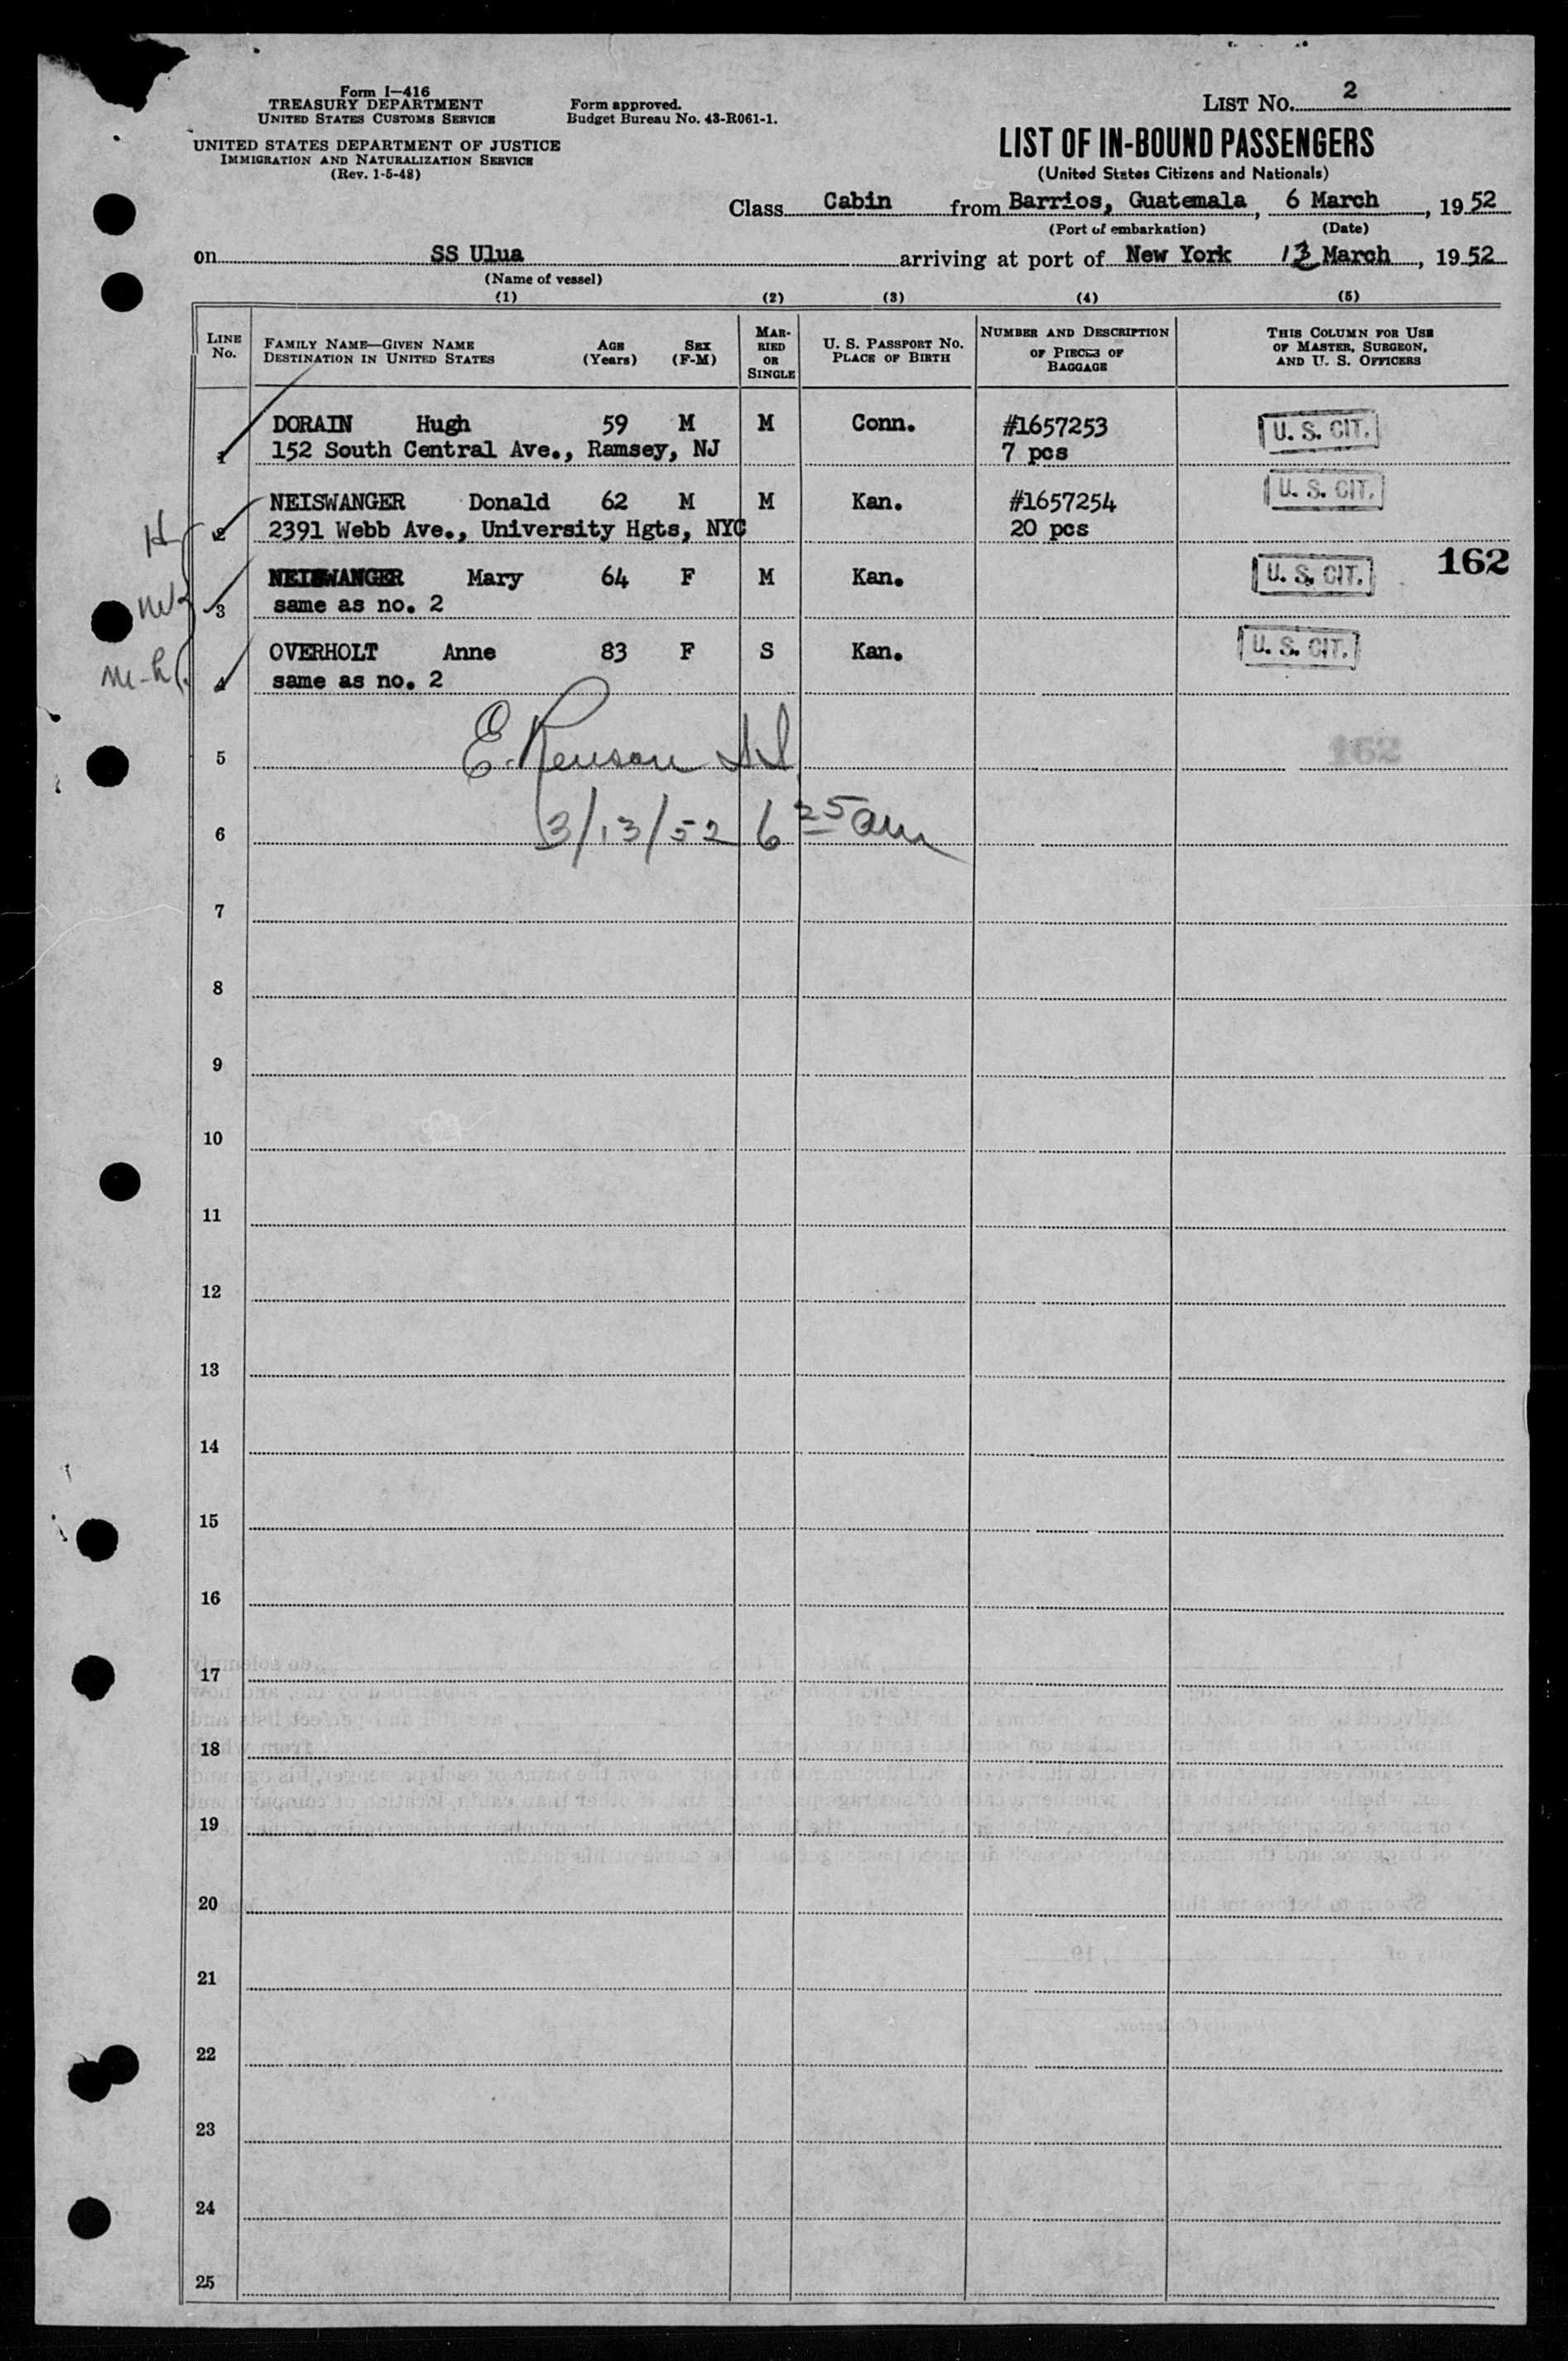 Form I-416
TREASURY DEPARTMENT
UNITED STATES CUSTOMS SERVICE
UNITED STATES DEPARTMENT OF JUSTICE
IMMIGRATION AND NATURALIZATION SERVICE
(Rev. 1-5-48)
Form approved.
Budget Bureau No. 43-R061-1.
LIST No. 2
LIST OF IN-BOUND PASSENGERS
(United States Citizens and Nationals)
Class Cabin from Barrios, Guatemala, 6 March, 1952
(Port of embarkation) (Date)
on SS Ulua arriving at port of New York 13 March, 1952
(Name of vessel)
(1) (2) (3) (4) (5)
LINE No.
FAMILY NAME—GIVEN NAME AGE SEX
DESTINATION IN UNITED STATES (Years) (F-M)
MAR-
RIED
OR
SINGLE
U. S. PASSPORT No.
PLACE OF BIRTH
NUMBER AND DESCRIPTION
OF PIECES OF
BAGGAGE
THIS COLUMN FOR USE
OF MASTER, SURGEON,
AND U. S. OFFICERS
DORAIN Hugh 59 M M Conn. #1657253 U. S. CIT.
1 152 South Central Ave., Ramsey, NJ 7 pcs
NEISWANGER Donald 62 M M Kan. #1657254 U. S. CIT.
2 2391 Webb Ave., University Hgts, NYC 20 pcs
NEISWANGER Mary 64 F M Kan. U. S. CIT. 162
3 same as no. 2
OVERHOLT Anne 83 F S Kan. U. S. CIT.
4 same as no. 2
5 162
6 3/13/52 6 25 am
7
8
9
10
11
12
13
14
15
16
17
18
19
20
21
22
23
24
25